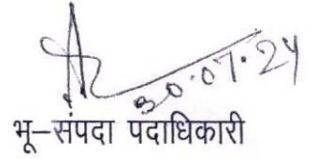 30.07.24
भू–संपदा पदाधिकारी